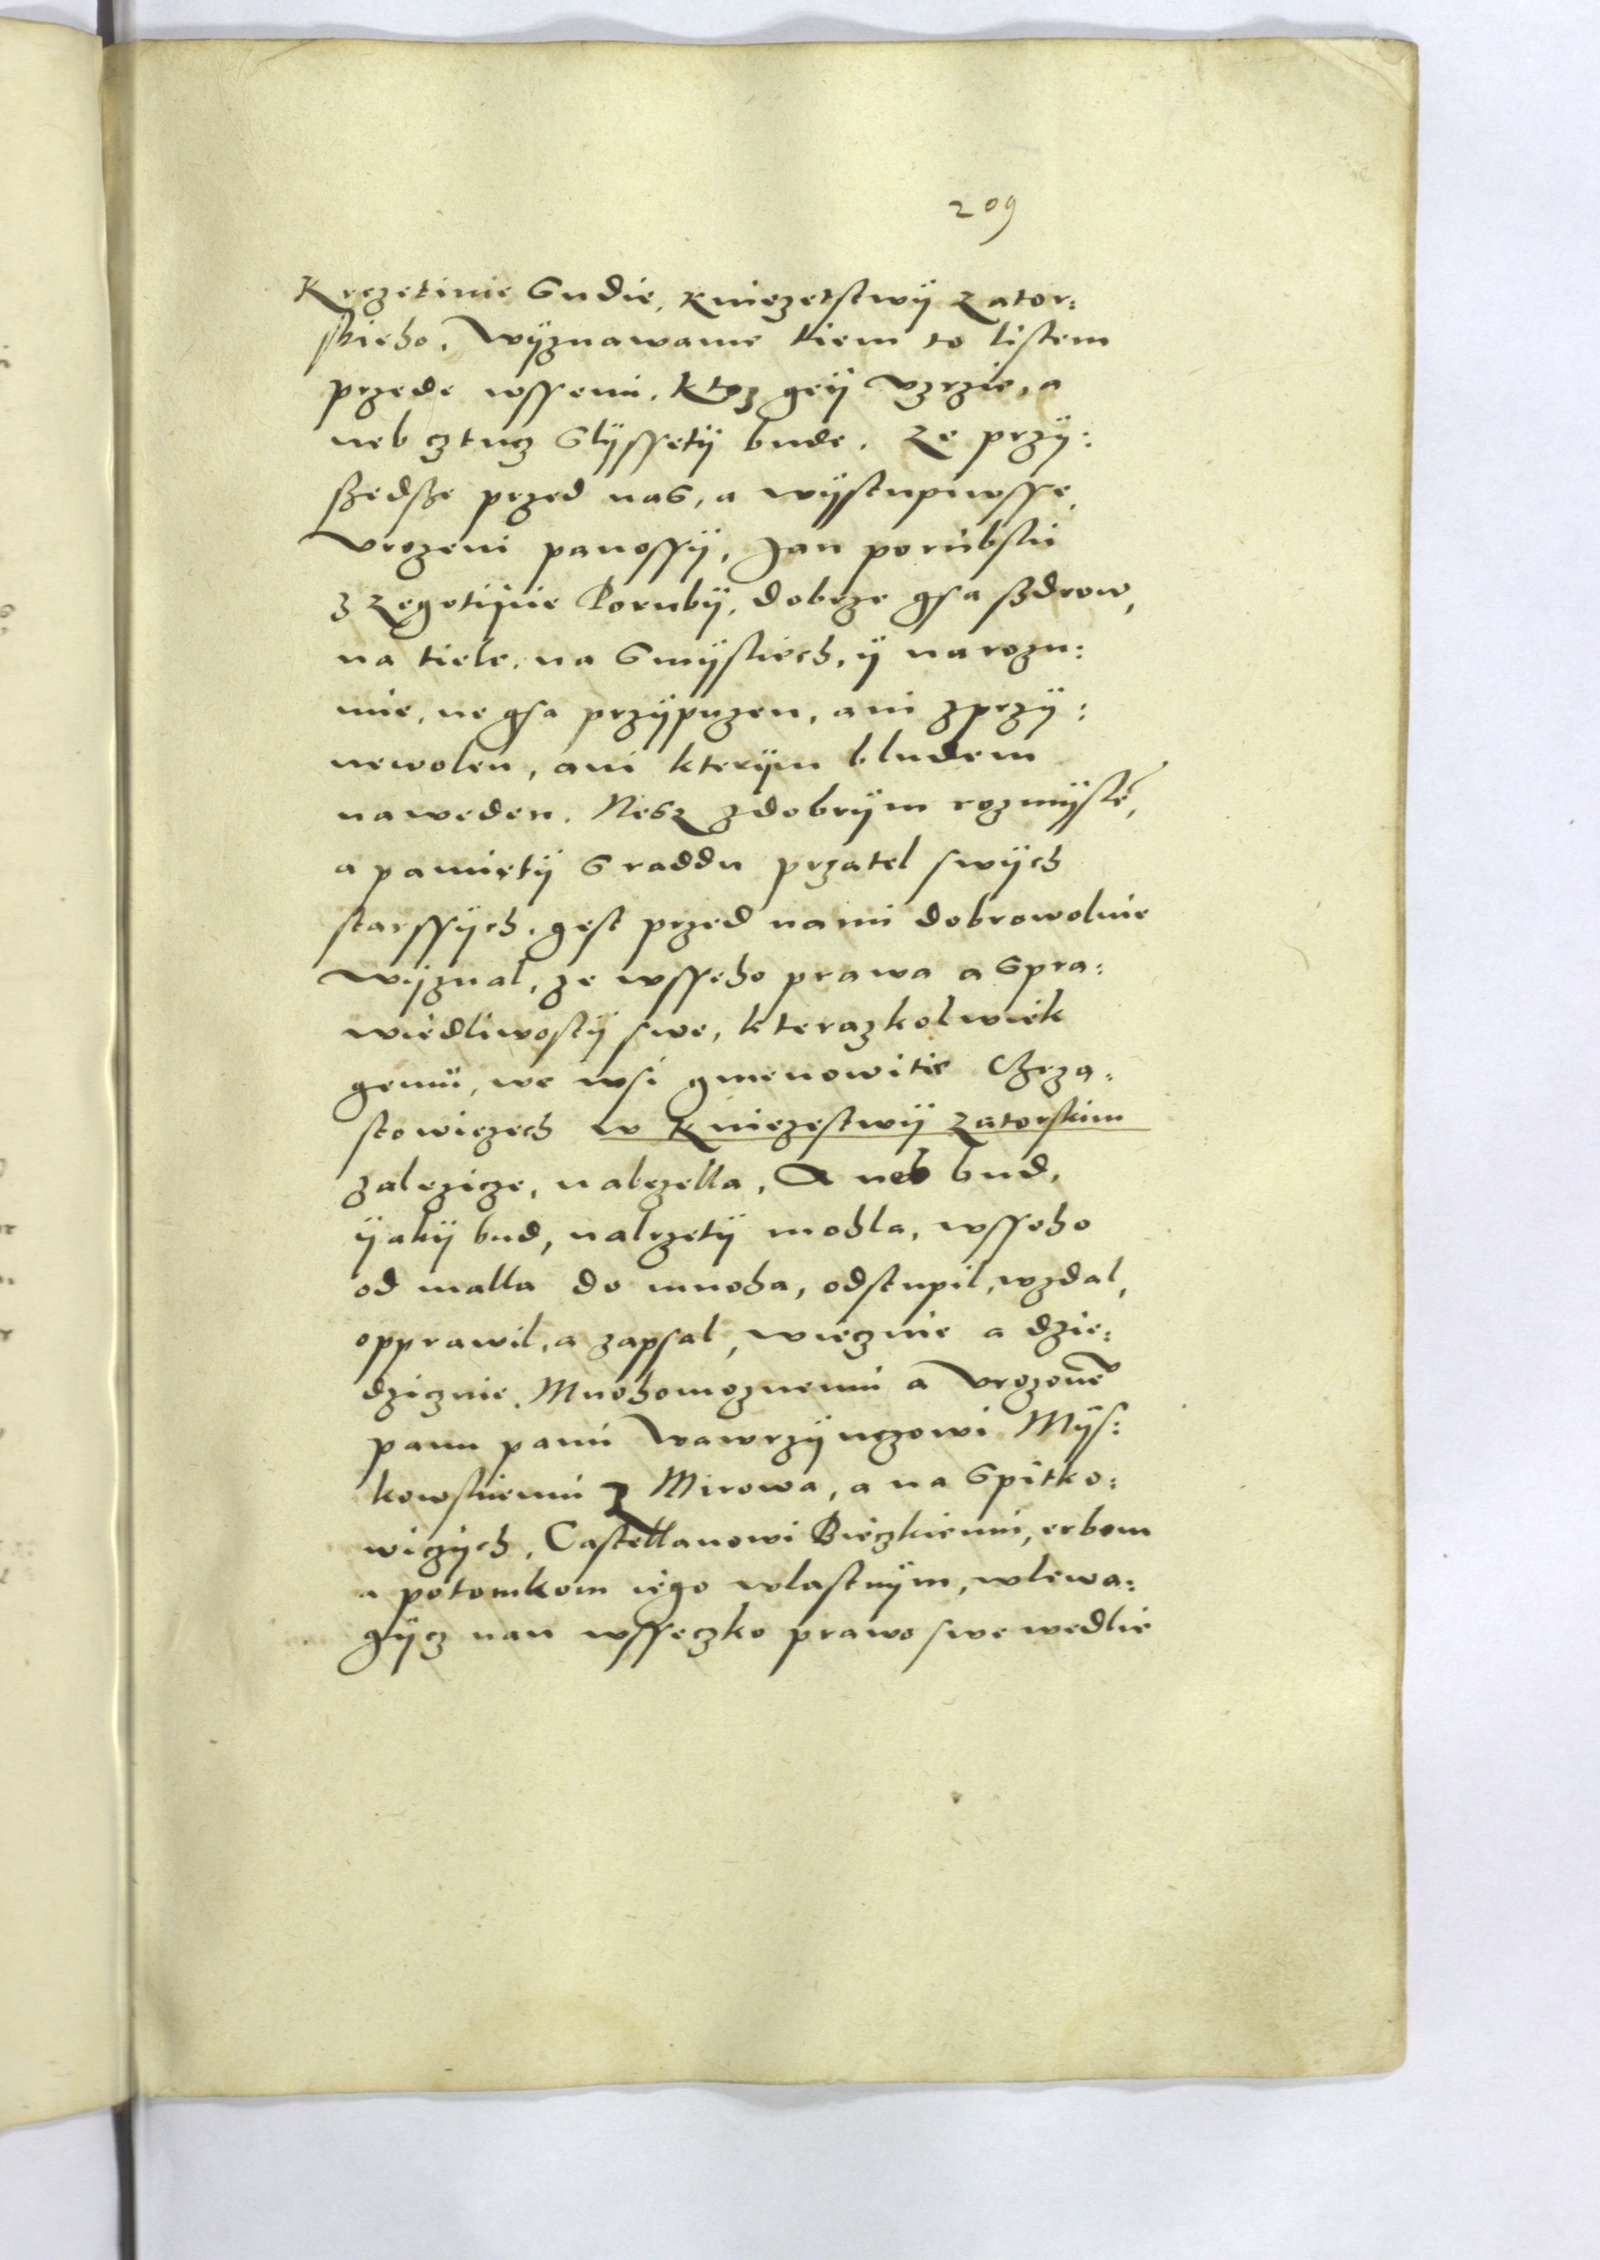 209
Krczetinie Sudie, Kniezetstwÿ Zator:
skieho, Wÿznawame tiem to listem
przede wssemi, Ktoz geÿ vzrzie, a
neb cztucz slÿssetÿ bude. Ze przÿ:
ßedße przed nas, a wÿstupiwsse,
Vrozeni panossÿ, Jan porubski
z Zegotÿnie Porubÿ, dobrze gsa ßdrow,
na tiele, na smÿsliech, ÿ na rozu:
mie, ne gsa przÿpuzen, ani zprzÿ:
newolen, ani kterÿm bludem
naweden. Nesz zdobrÿm rozmÿslē,
a pamietÿ s raddu przatel swÿch
starssÿch, gest przed nami dobrowolnie
wÿznal, ze wsseho prawa a spra:
wiedliwostÿ swe, kterazkolwiek
gemu, we wsi gmenowitie Chrza:
stowiczech w Kniezestwÿ Zatorskim
zalezicze, nalezella, A neb bud,
ÿakÿ bud, nalezetÿ mohla, wsseho
od malla do mnoha, odstupil, wzdal,
opprawil, a zapsal, wiecznie a dzie:
dzicznie, Mnohomoznemu a Vrozonē
panu panu Wawrzÿnczowi Mÿs:
kowskiemu Z Mirowa, a na Spitko:
wiczÿch, Castellanowi Bieczkiemu, erbom
a potomkom iego wlastnÿm, wlewa:
gÿcz nan wsseczko prawo swe wedlie